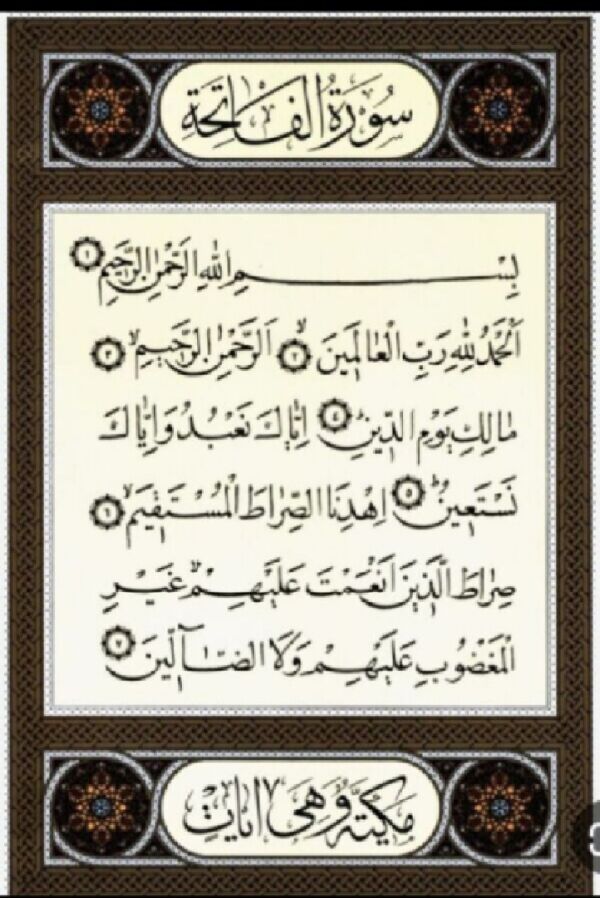 سُورَةُ الْفَاتِحَةِ
بِسْمِ اللهِ الرَّحْمٰنِ الرَّحِيمِ ١
اَلْحَمْدُ لِلّٰهِ رَبِّ الْعَالَمِينَ ٢ اَلرَّحْمٰنِ الرَّحِيمِ ٣
مَالِكِ يَوْمِ الدِّينِ ٤ اِيَّاكَ نَعْبُدُ وَاِيَّاكَ
نَسْتَعِينُ ٥ اِهْدِنَا الصِّرَاطَ الْمُسْتَقِيمَ ٦
صِرَاطَ الَّذِينَ اَنْعَمْتَ عَلَيْهِمْ غَيْرِ
الْمَغْضُوبِ عَلَيْهِمْ وَلَا الضَّالِّينَ ٧
مَكِّيَّةٌ وَهِيَ ٧ اٰيَاتٍ